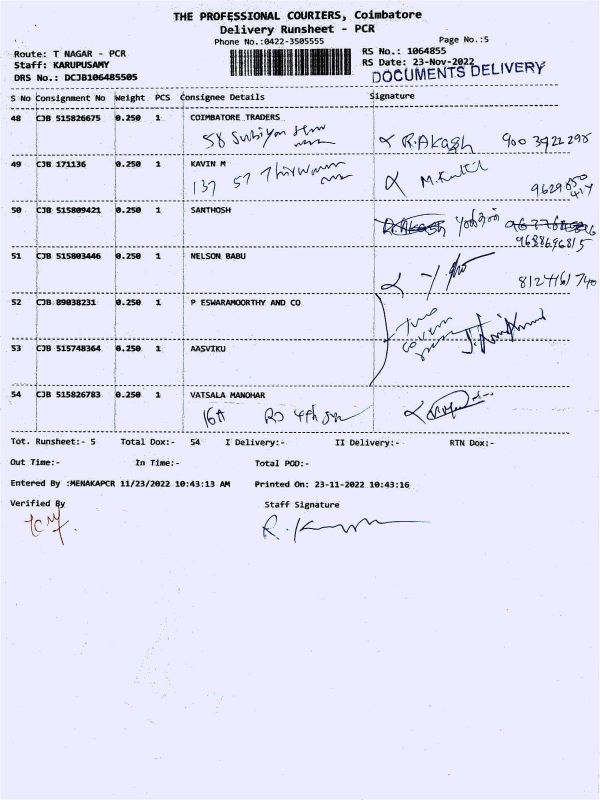 THE PROFESSIONAL COURIERS, Coimbatore
Delivery Runsheet - PCR
Phone No.:0422-3505555
Page No.:5
Route: T NAGAR - PCR
RS No.: 1064855
Staff: KARUPUSAMY
RS Date: 23-Nov-2022
DRS No.: DCJB106485505
DOCUMENTS DELIVERY
S No Consignment No Weight PCS Consignee Details Signature
48 CJB 515826675 0.250 1 COIMBATORE TRADERS
58
R.Akash
49 CJB 171136 0.250 1 KAVIN M
137 57
50 CJB 515809421 0.250 1 SANTHOSH
9688696815
51 CJB 515803446 0.250 1 NELSON BABU
8124161740
52 CJB 89038231 0.250 1 P ESWARAMOORTHY AND CO
53 CJB 515748364 0.250 1 AASVIKU
54 CJB 515826783 0.250 1 VATSALA MANOHAR
16A
Tot. Runsheet:- 5 Total Dox:- 54 I Delivery:- II Delivery:- RTN Dox:-
Out Time:- In Time:- Total POD:-
Entered By :MENAKAPCR 11/23/2022 10:43:13 AM Printed On: 23-11-2022 10:43:16
Verified By Staff Signature